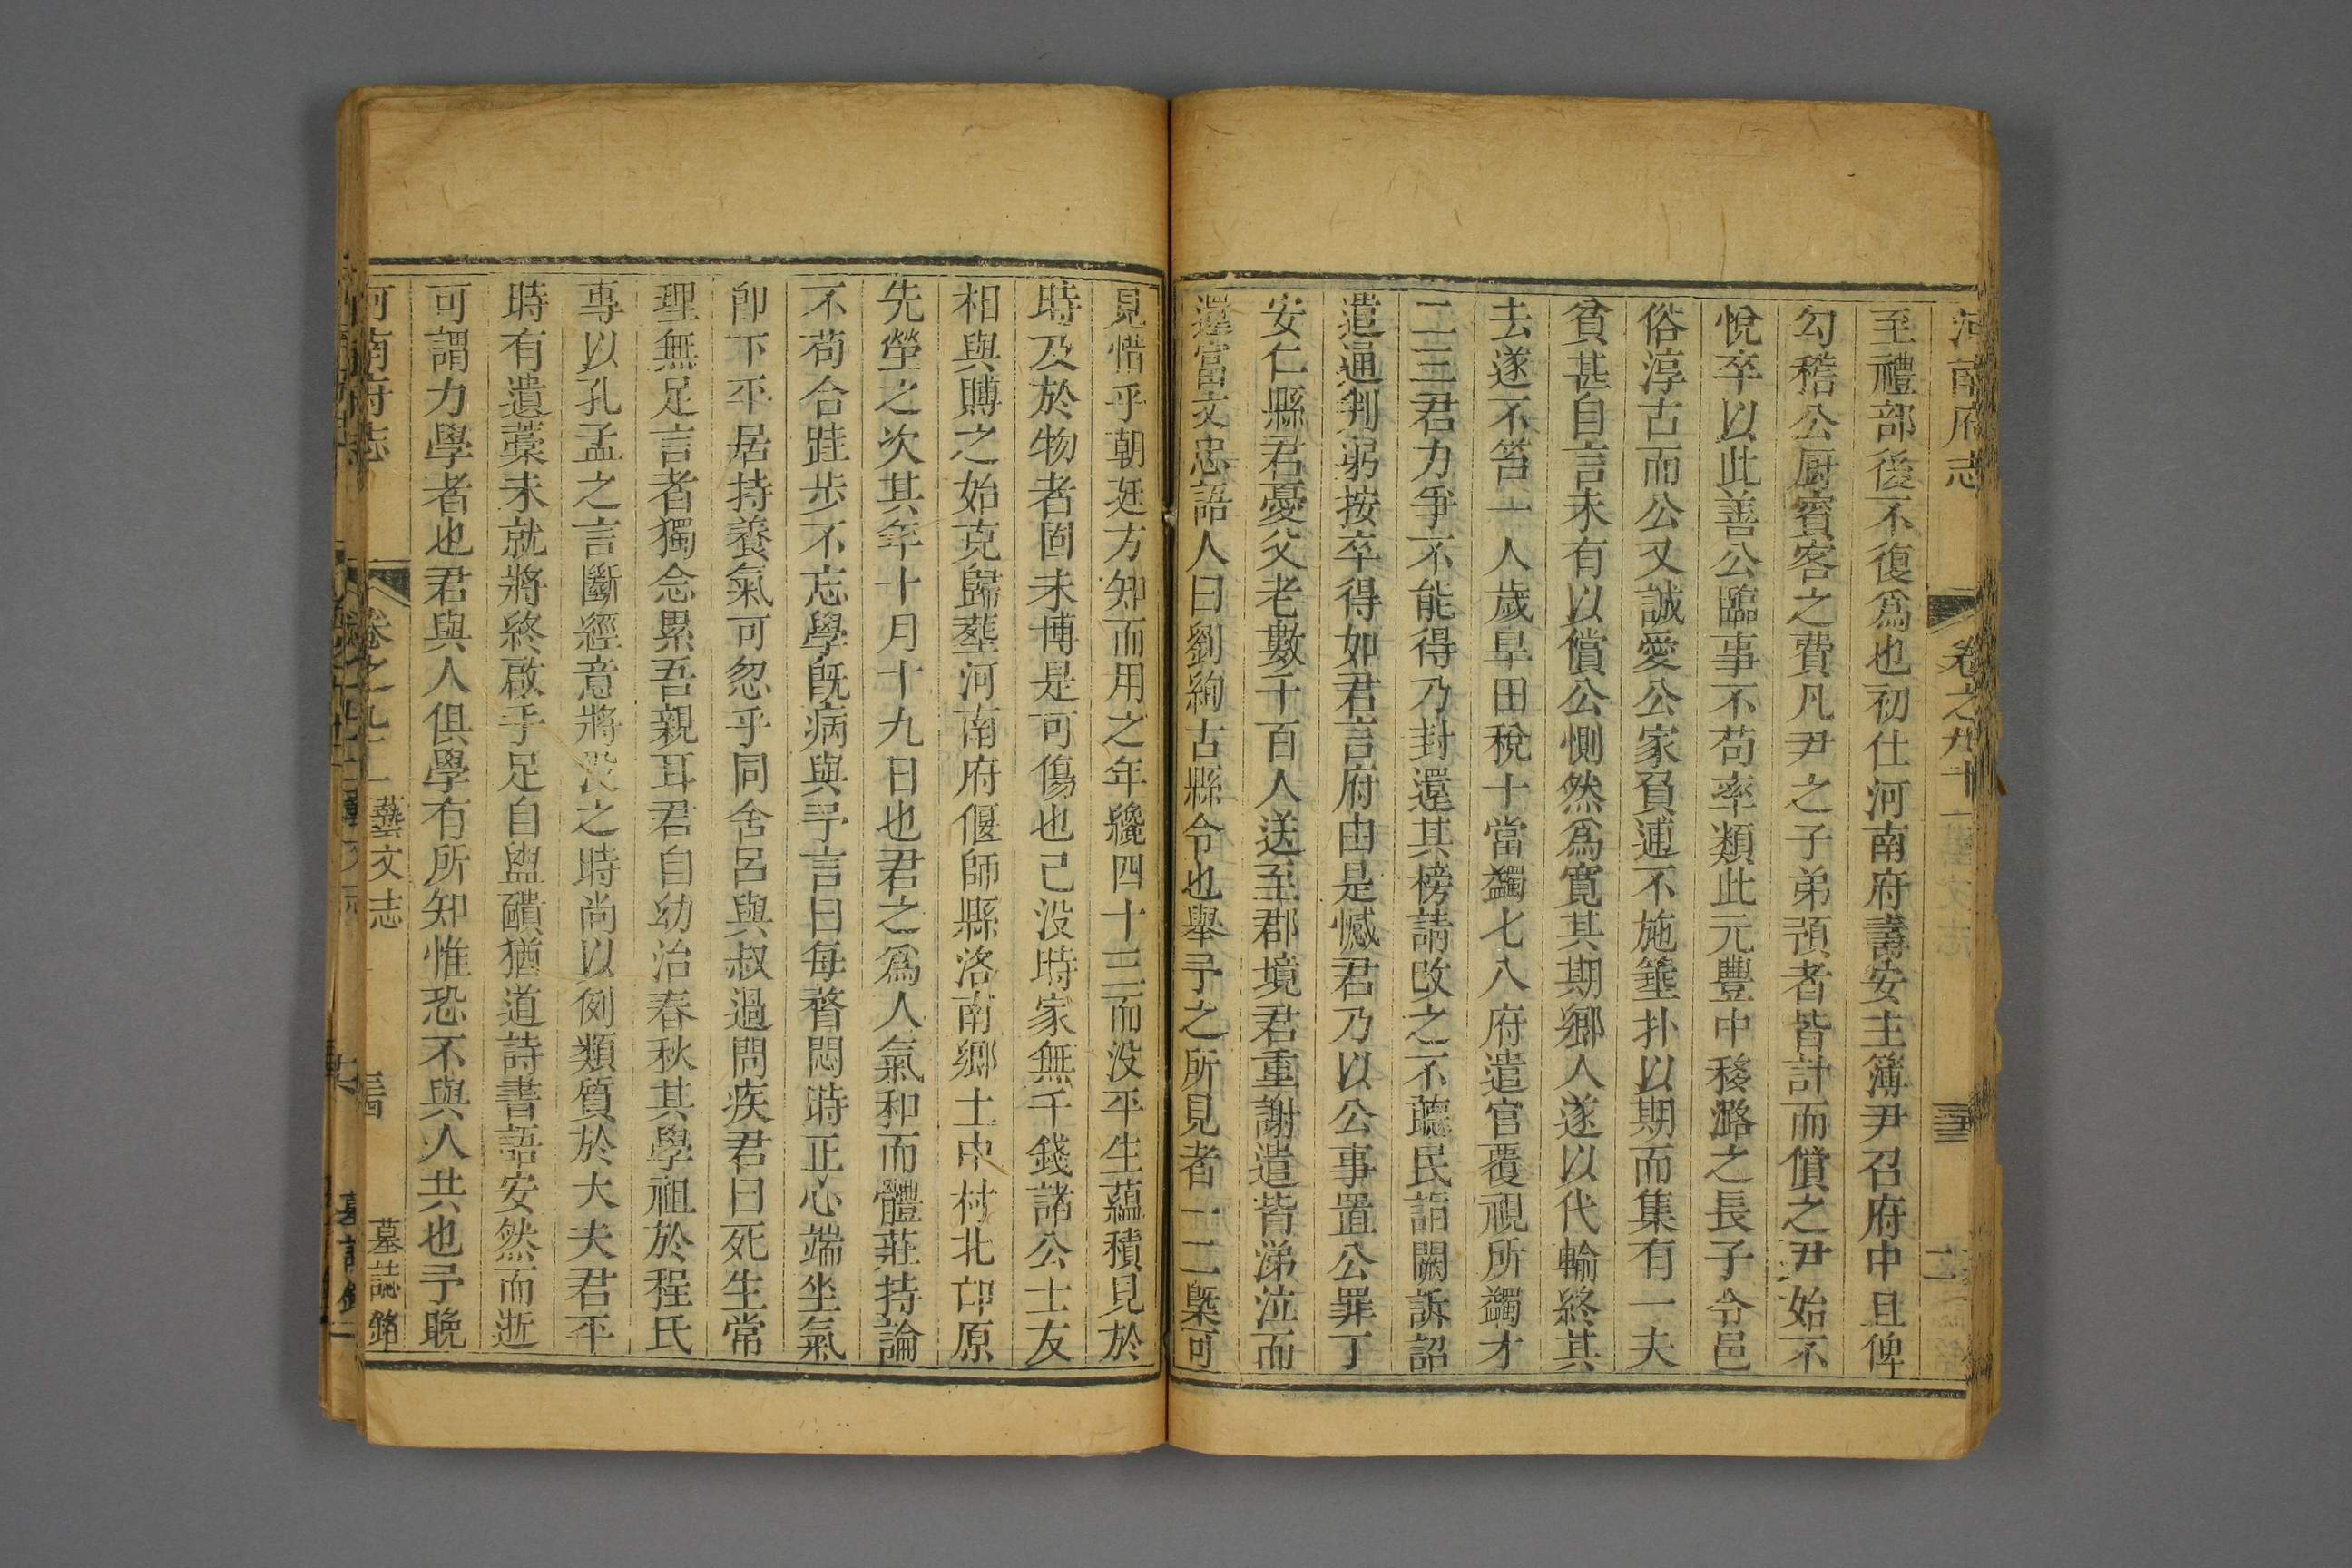 河南府志 卷之九十 三
至禮部後不復爲也初仕河南府壽安主簿尹召府中且俾
勾稽公厨賓客之費凡尹之子弟預者皆計而償之尹始不
悅卒以此善公臨事不苟率類此元豐中移潞之長子令邑
俗淳古而公又誠愛公家負逋不施箠扑以期而集有一夫
貧甚自言未有以償公惻然爲寬其期鄉人遂以代輸終其
去遂不笞一人歲旱田稅十當蠲七八府遣官覆視所蠲才
二三君力爭不能得乃封還其榜請改之不聽民詣闕訴詔
遣通判躬按卒得如君言府由是憾君乃以公事置公罪丁
安仁縣君憂父老數千百人送至郡境君重謝遣皆涕泣而
還富文忠語人曰劉絢古縣令也舉予之所見者一二槩可
見惜乎朝廷方知而用之年纔四十三而没平生蘊積見於
時及於物者固未博是可傷也己没時家無千錢諸公士友
相與賻之始克歸葬河南府偃師縣洛南鄉土中村北邙原
先塋之次其年十月十九日也君之爲人氣和而體莊持論
不苟合跬步不忘學旣病與予言曰每瞀悶時正心端坐氣
卽下平居持養氣可忽乎同舍呂與叔過問疾君曰死生常
理無足言者獨念累吾親耳君自幼治春秋其學祖於程氏
專以孔孟之言斷經意將没之時尚以例類質於大夫君平
時有遺藁未就將終啟手足自盥靧猶道詩書語安然而逝
可謂力學者也君與人俱學有所知惟恐不與人共也予晚
河南府志 卷之九十 藝文志 墓誌銘